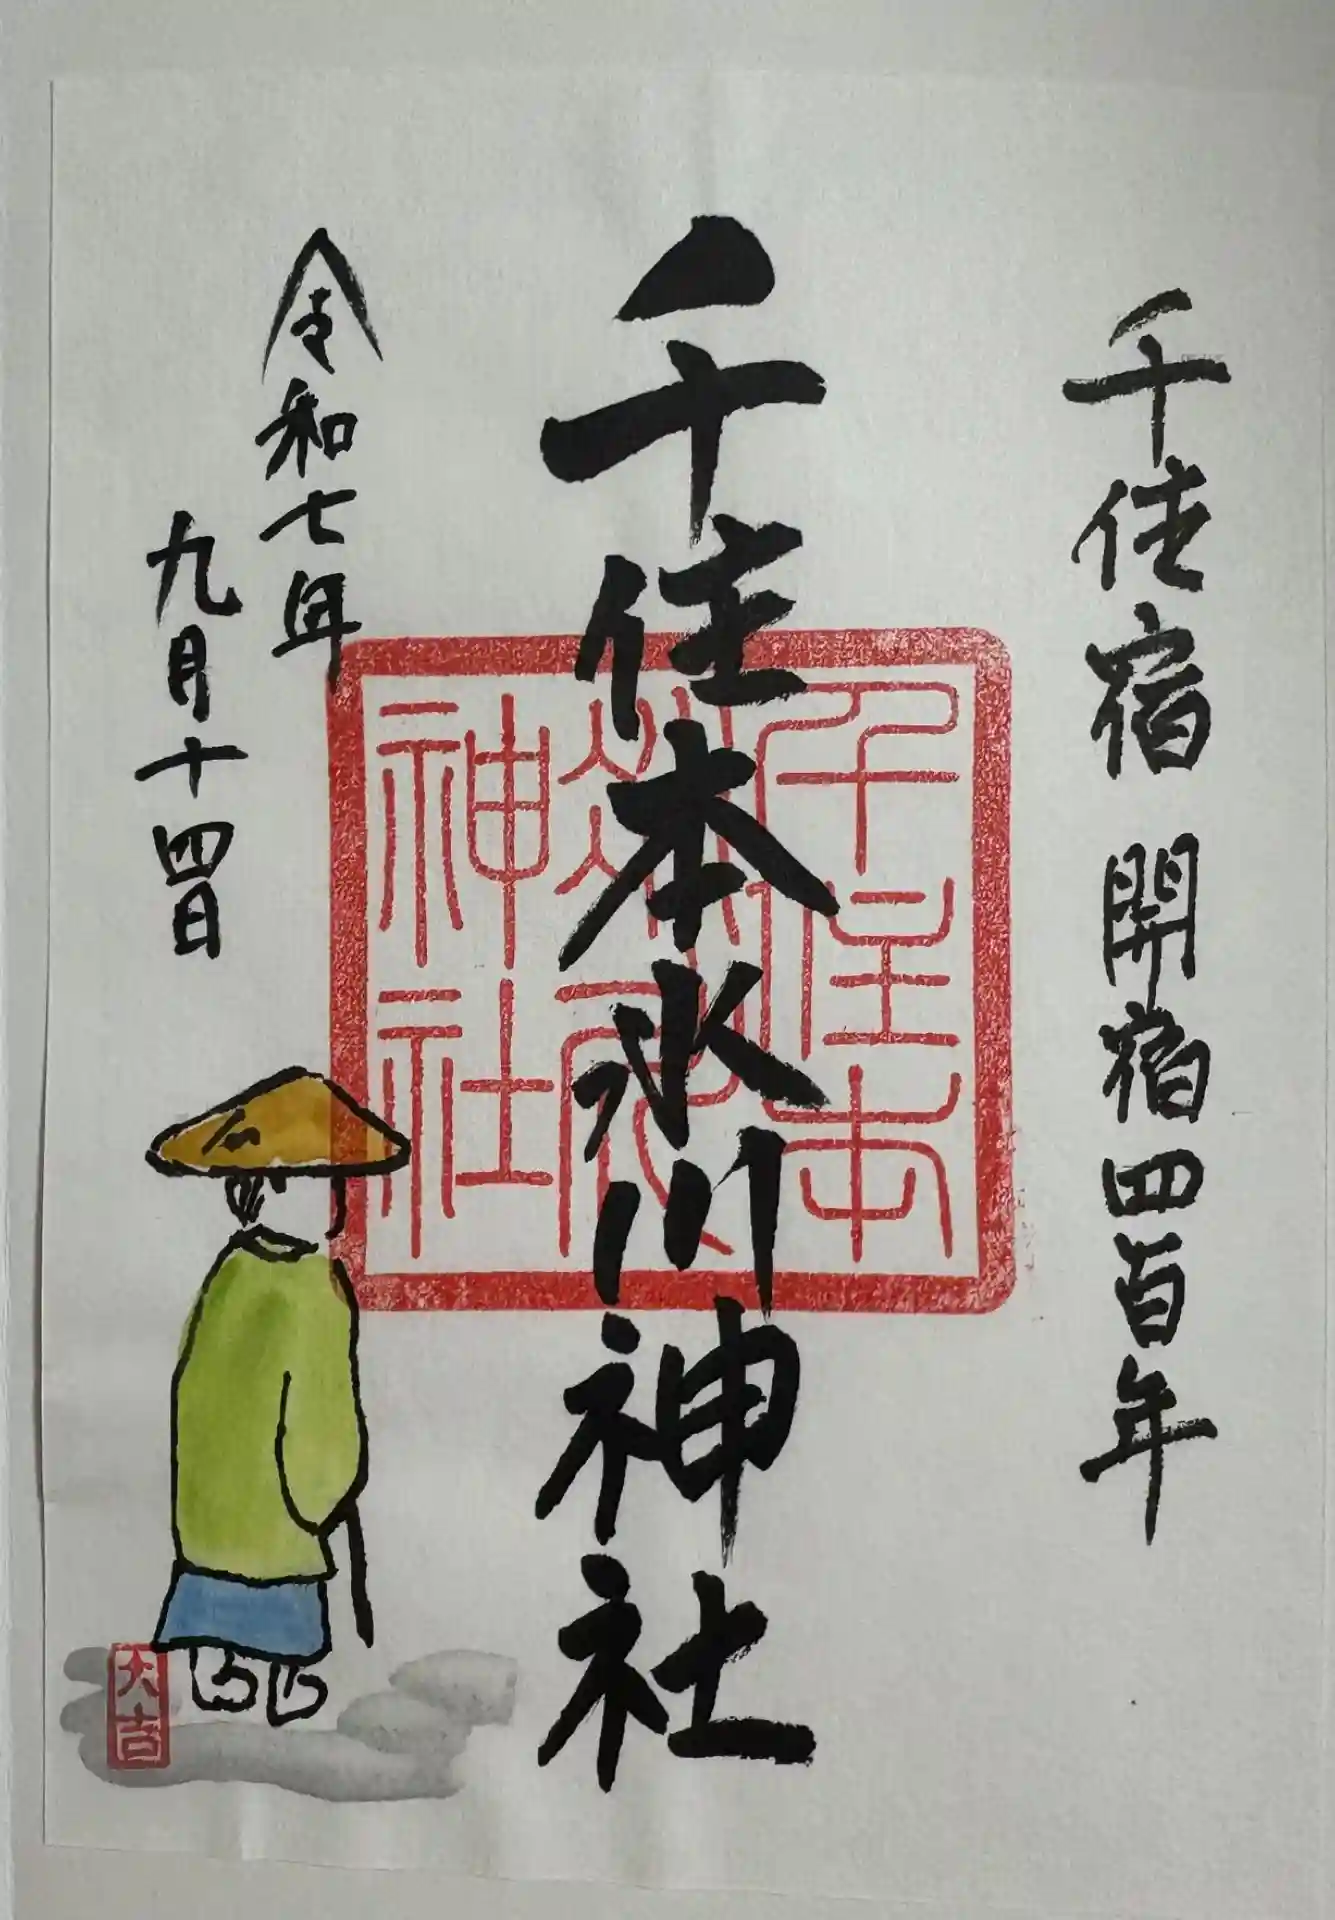 千住宿 開宿四百年
千住本氷川神社
千住本
氷川
神社
令和七年
九月十四日
大吉